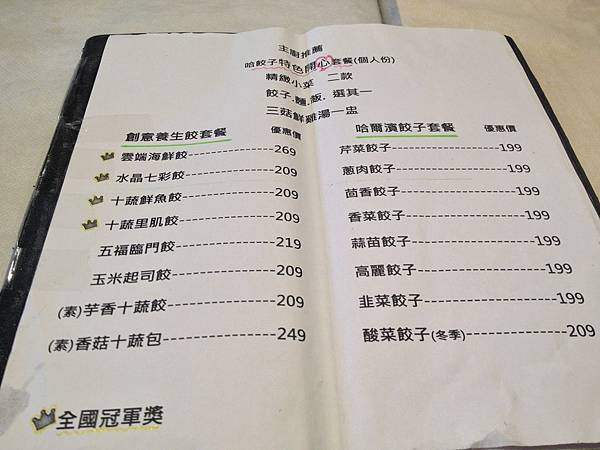 主廚推薦
哈餃子特色開心套餐(個人份)
精緻小菜 二款
餃子.麵.飯. 選其一
三菇鮮雞湯一盅
創意養生餃套餐 優惠價
雲端海鮮餃----------------269
水晶七彩餃----------------209
十蔬鮮魚餃----------------209
十蔬里肌餃----------------209
五福臨門餃----------------219
玉米起司餃----------------209
(素)芋香十蔬餃----------------209
(素)香菇十蔬包----------------249
全國冠軍獎
哈爾濱餃子套餐 優惠價
芹菜餃子----------------199
蔥肉餃子----------------199
茴香餃子----------------199
香菜餃子----------------199
蒜苗餃子----------------199
高麗餃子----------------199
韭菜餃子----------------199
酸菜餃子(冬季)----------------209